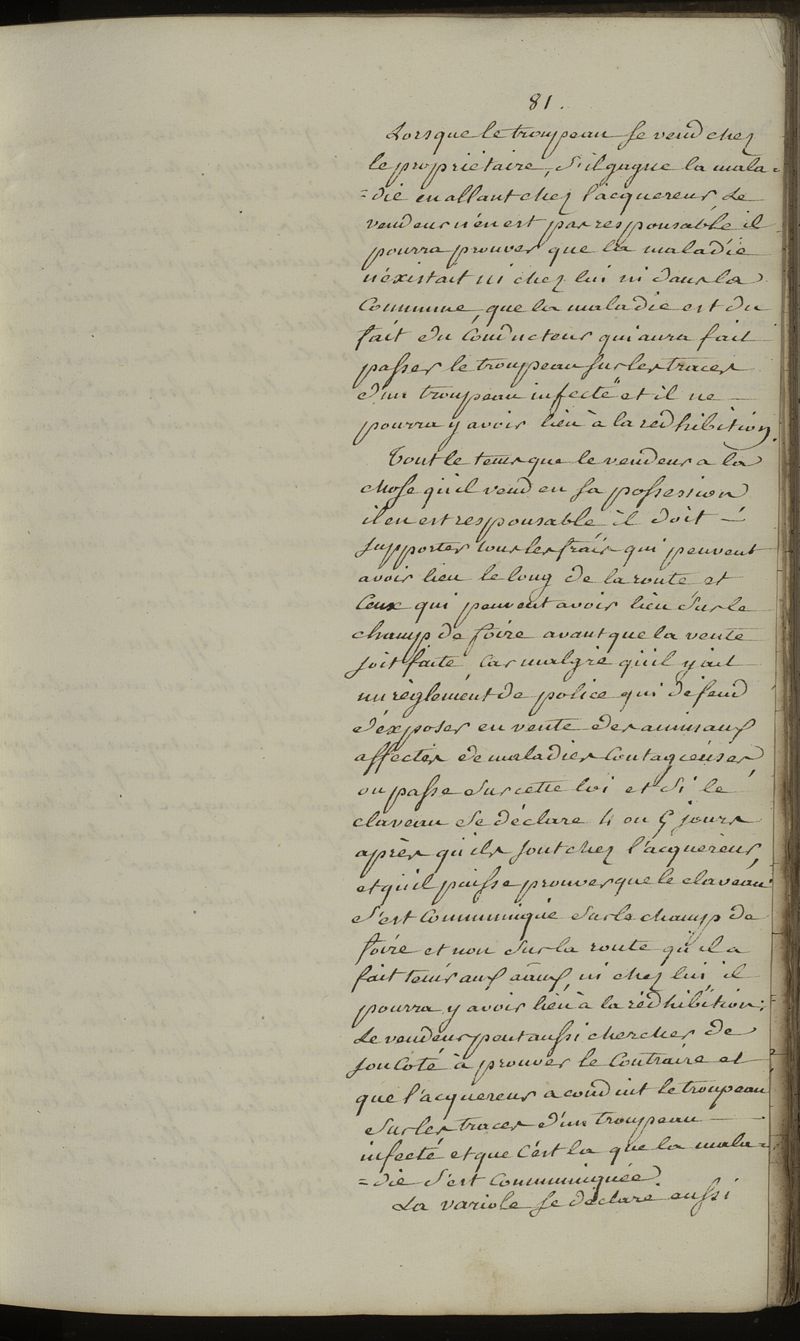 81.
Lorsque le troupeau se vend chez
le propriétaire, s'il gagne la mala=
=die en allant chez l'acquereur Le
vendeur n'en est pas responsable il
pourra prouver que la maladie
n'éxistait ni chez lui ni dans la
Commune, que la maladie est du
fait du Conducteur qui aura fait
passer le troupeau sur les traces
d'un troupeau infecté et il ne —
pourra y avoir lieu à la rédhibition.
Tout le tems que le vendeur a la
chose qu'il vend en sa possession
il en est responsable il doit —
supporter tous les frais qui peuvent
avoir lieu le long de la route et
Ceux qui peuvent avoir lieu sur le
champ de foire avant que la vente
soit faite, Car malgré qu'il y ait
un règlement de police qui défend
d'éxposer en vente des animaux
affectés de maladies Contagieuses
on passe sur cette loi et si le
claveau se déclare 4 ou 5 jours
après qu'ils sont chez l'acquereur,
et qu'il puisse prouver que le claveau
s'est Communiqué sur le champ de
foire et non sur la route qu'il a
fait tenir aux aaux, ni chez lui, il
pourra y avoir lieu à la rédhibition;
Le vendeur peut aussi chercher de
son Coté à prouver le Contraire et
que l'acquereur a conduit le troupeau
sur les traces d'un troupeau —
infecté et que C'est la que la mala=
=die s'est Communiquée.
La variole se déclare aussi